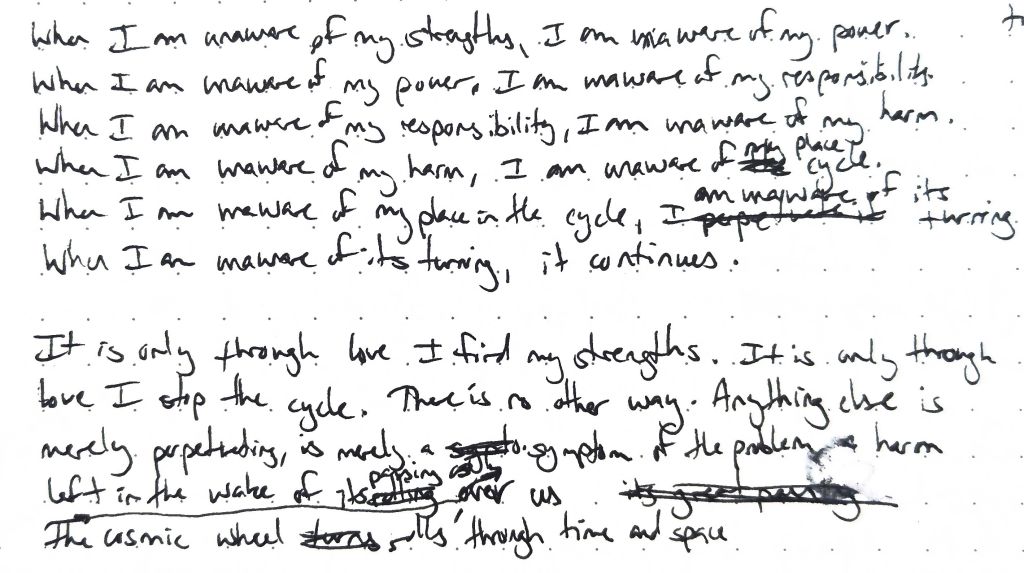 When I am unaware of my strengths, I am unaware of my power.
When I am unaware of my power, I am unaware of my responsibility.
When I am unaware of my responsibility, I am unaware of my harm.
When I am unaware of my harm, I am unaware of my place cycle.
When I am unaware of my place in the cycle, I am unaware of its turning
When I am unaware of its turning, it continues.
It is only through love I find my strengths. It is only through
love I stop the cycle. There is no other way. Anything else is
merely perpetuating, is merely a symptom of the problem harm
left in the wake of its passing over us its great passing
The cosmic wheel turns rolls through time and space